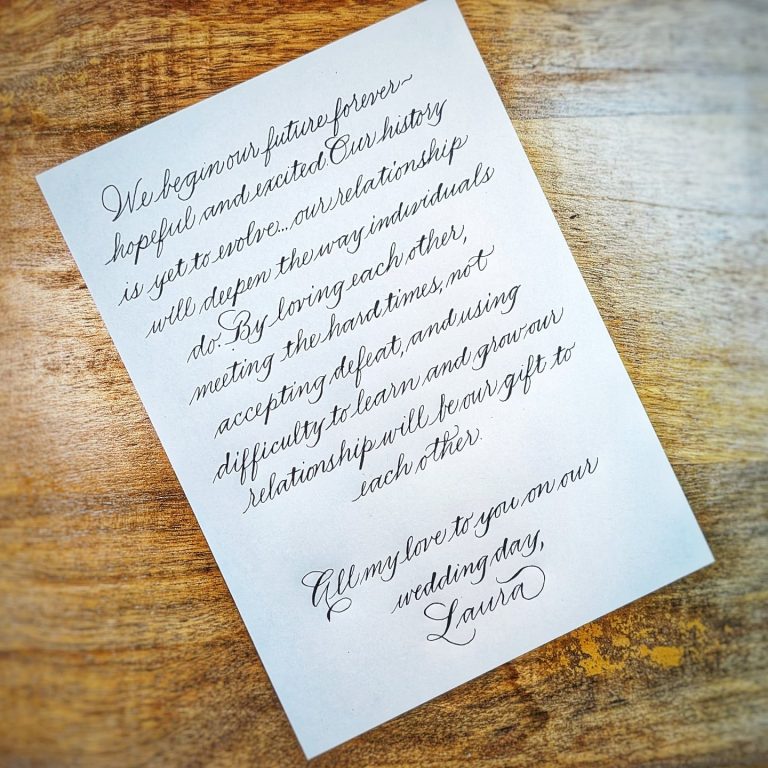 We begin our future forever~
hopeful and excited. Our history
is yet to evolve... our relationship
will deepen the way individuals
do. By loving each other,
meeting the hard times, not
accepting defeat, and using
difficulty to learn and grow our
relationship will be our gift to
each other.
All my love to you on our
wedding day,
Laura